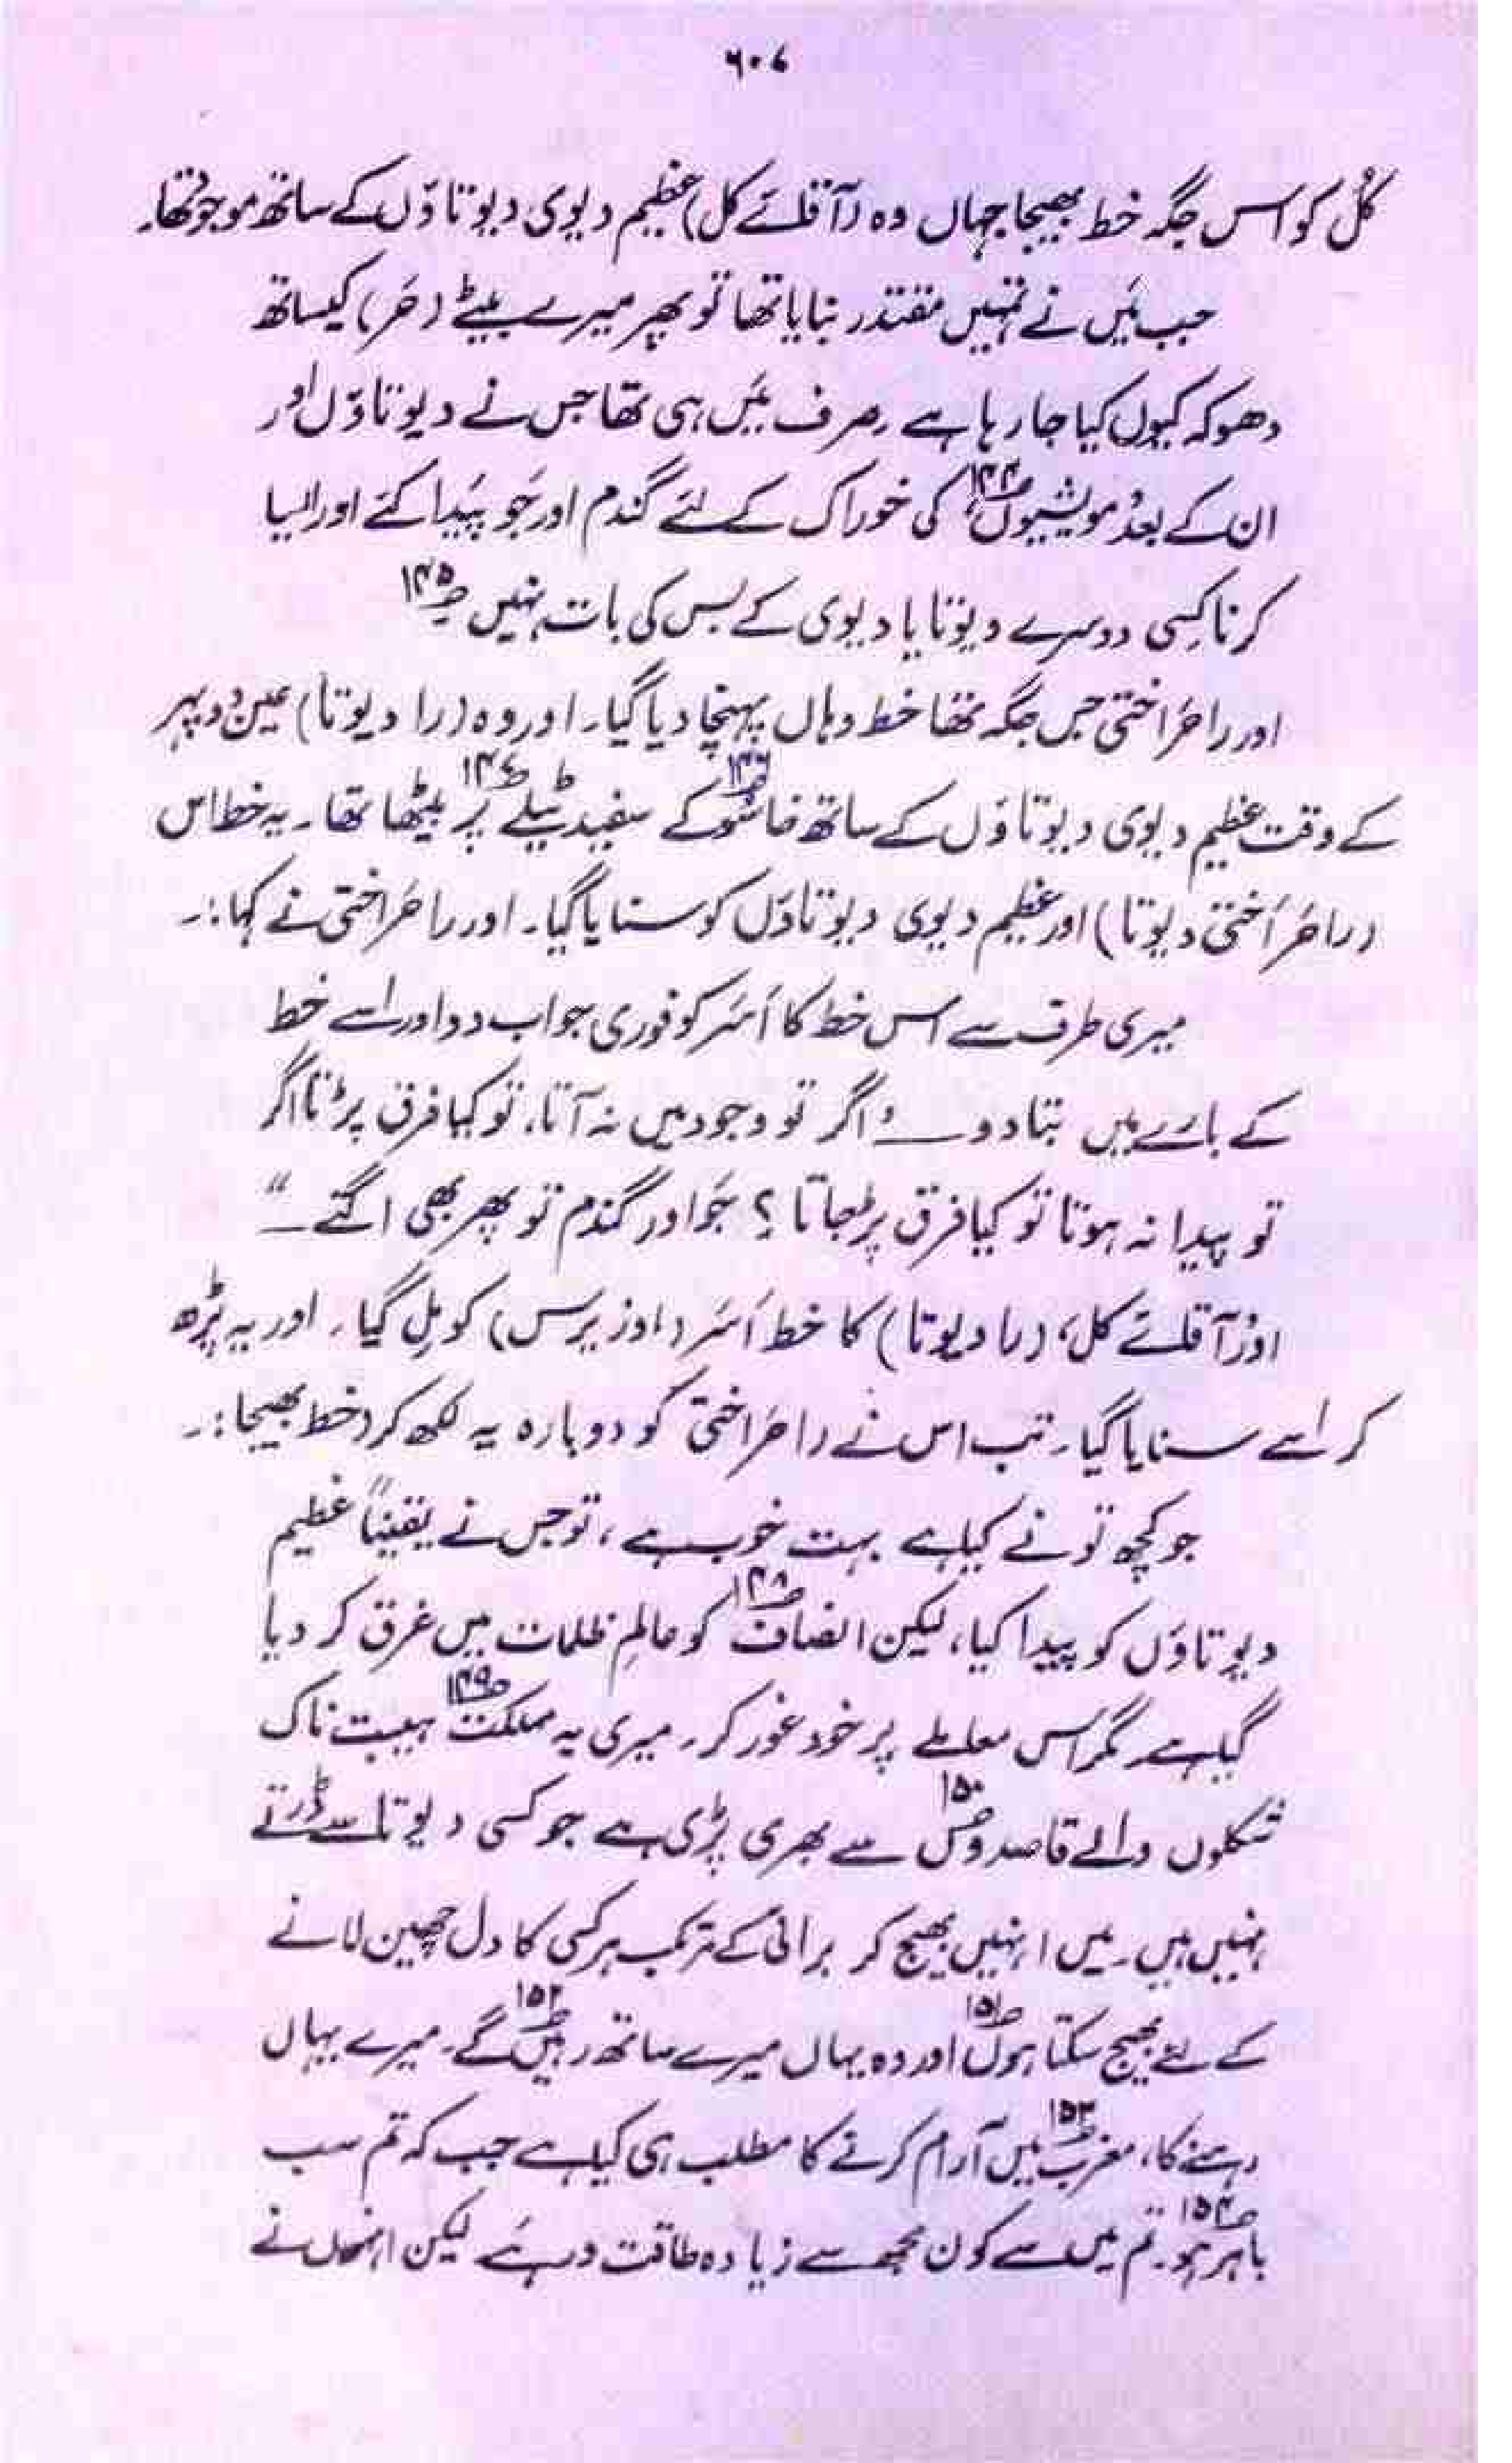 ۶۰۷
کُل کو اس جگہ خط بھیجا جہاں وہ (آقائے کل) عظیم دیوی دیوتاؤں کے ساتھ موجود تھا۔
جب مَیں نے تمہیں مقتدر بنایا تھا تو پھر میرے بیٹے (حَر) کیساتھ
دھوکہ کیوں کیا جا رہا ہے۔ صرف مَیں ہی تھا جس نے دیوتاؤں اور
ان کے بعد مویشیوں۱۴۴ کی خوراک کے لئے گندم اور جَو پَیدا کئے اور ایسا
کرنا کِسی دوسرے دیوتا یا دیوی کے بس کی بات نہیں۱۴۵
اور را حَر اختی جس جگہ تھا خط وہاں پہنچا دیا گیا۔ اور وہ (را دیوتا) عین دوپہر
کے وقت عظیم دیوی دیوتاؤں کے ساتھ خاسُو۱۴۶ کے سفید ٹیلے۱۴۷ پر بیٹھا تھا۔ یہ خط اس
(را حَر اَختی دیوتا) اور عظیم دیوی دیوتاؤں کو سنایا گیا۔ اور را حَر اختی نے کہا:۔
میری طرف سے اس خط کا اَسَر کو فوری جواب دو اور اسے خط
کے بارے میں بتا دو ـــ "اگر تو وجود میں نہ آتا، تو کیا فرق پڑتا اگر
تو پیدا نہ ہوتا تو کیا فرق پڑ جاتا ؟ جَو اور گندم تو پھر بھی اگتے ــ"
اور 'آقائے کل' (را دیوتا) کا خط اَسَر (اوزیرس) کو مِل گیا۔ اور یہ پڑھ
کر اسے سنایا گیا۔ تب اس نے را حَر اختی کو دوبارہ یہ لکھ کر خط بھیجا:۔
جو کچھ تو نے کیا ہے بہت خوب ہے، تو جس نے یقیناً عظیم
دیوتاؤں کو پیدا کیا، لیکن انصاف۱۴۸ کو عالمِ ظلمات میں غرق کر دیا
گیا ہے۔ مگر اس معاملے پر خود غور کر۔ میری یہ مملکت۱۴۹ ہیبت ناک
شکلوں والے قاصدوں۱۵۰ سے بھری پڑی ہے جو کسی دیوتا سے ڈرتے
نہیں ہیں۔ میں انہیں بھیج کر برائی کے مرتکب ہر کسی کا دل چھین لانے
کے لئے بھیج سکتا ہوں۱۵۱ اور وہ یہاں میرے ساتھ رہیں۱۵۲ گے۔ میرے یہاں
رہنے کا، مغرب۱۵۳ میں آرام کرنے کا مطلب ہی کیا ہے جب کہ تم سب
باہر ہو۱۵۴۔ تم میں سے کون مجھ سے زیادہ طاقت ور ہے لیکن انھوں نے